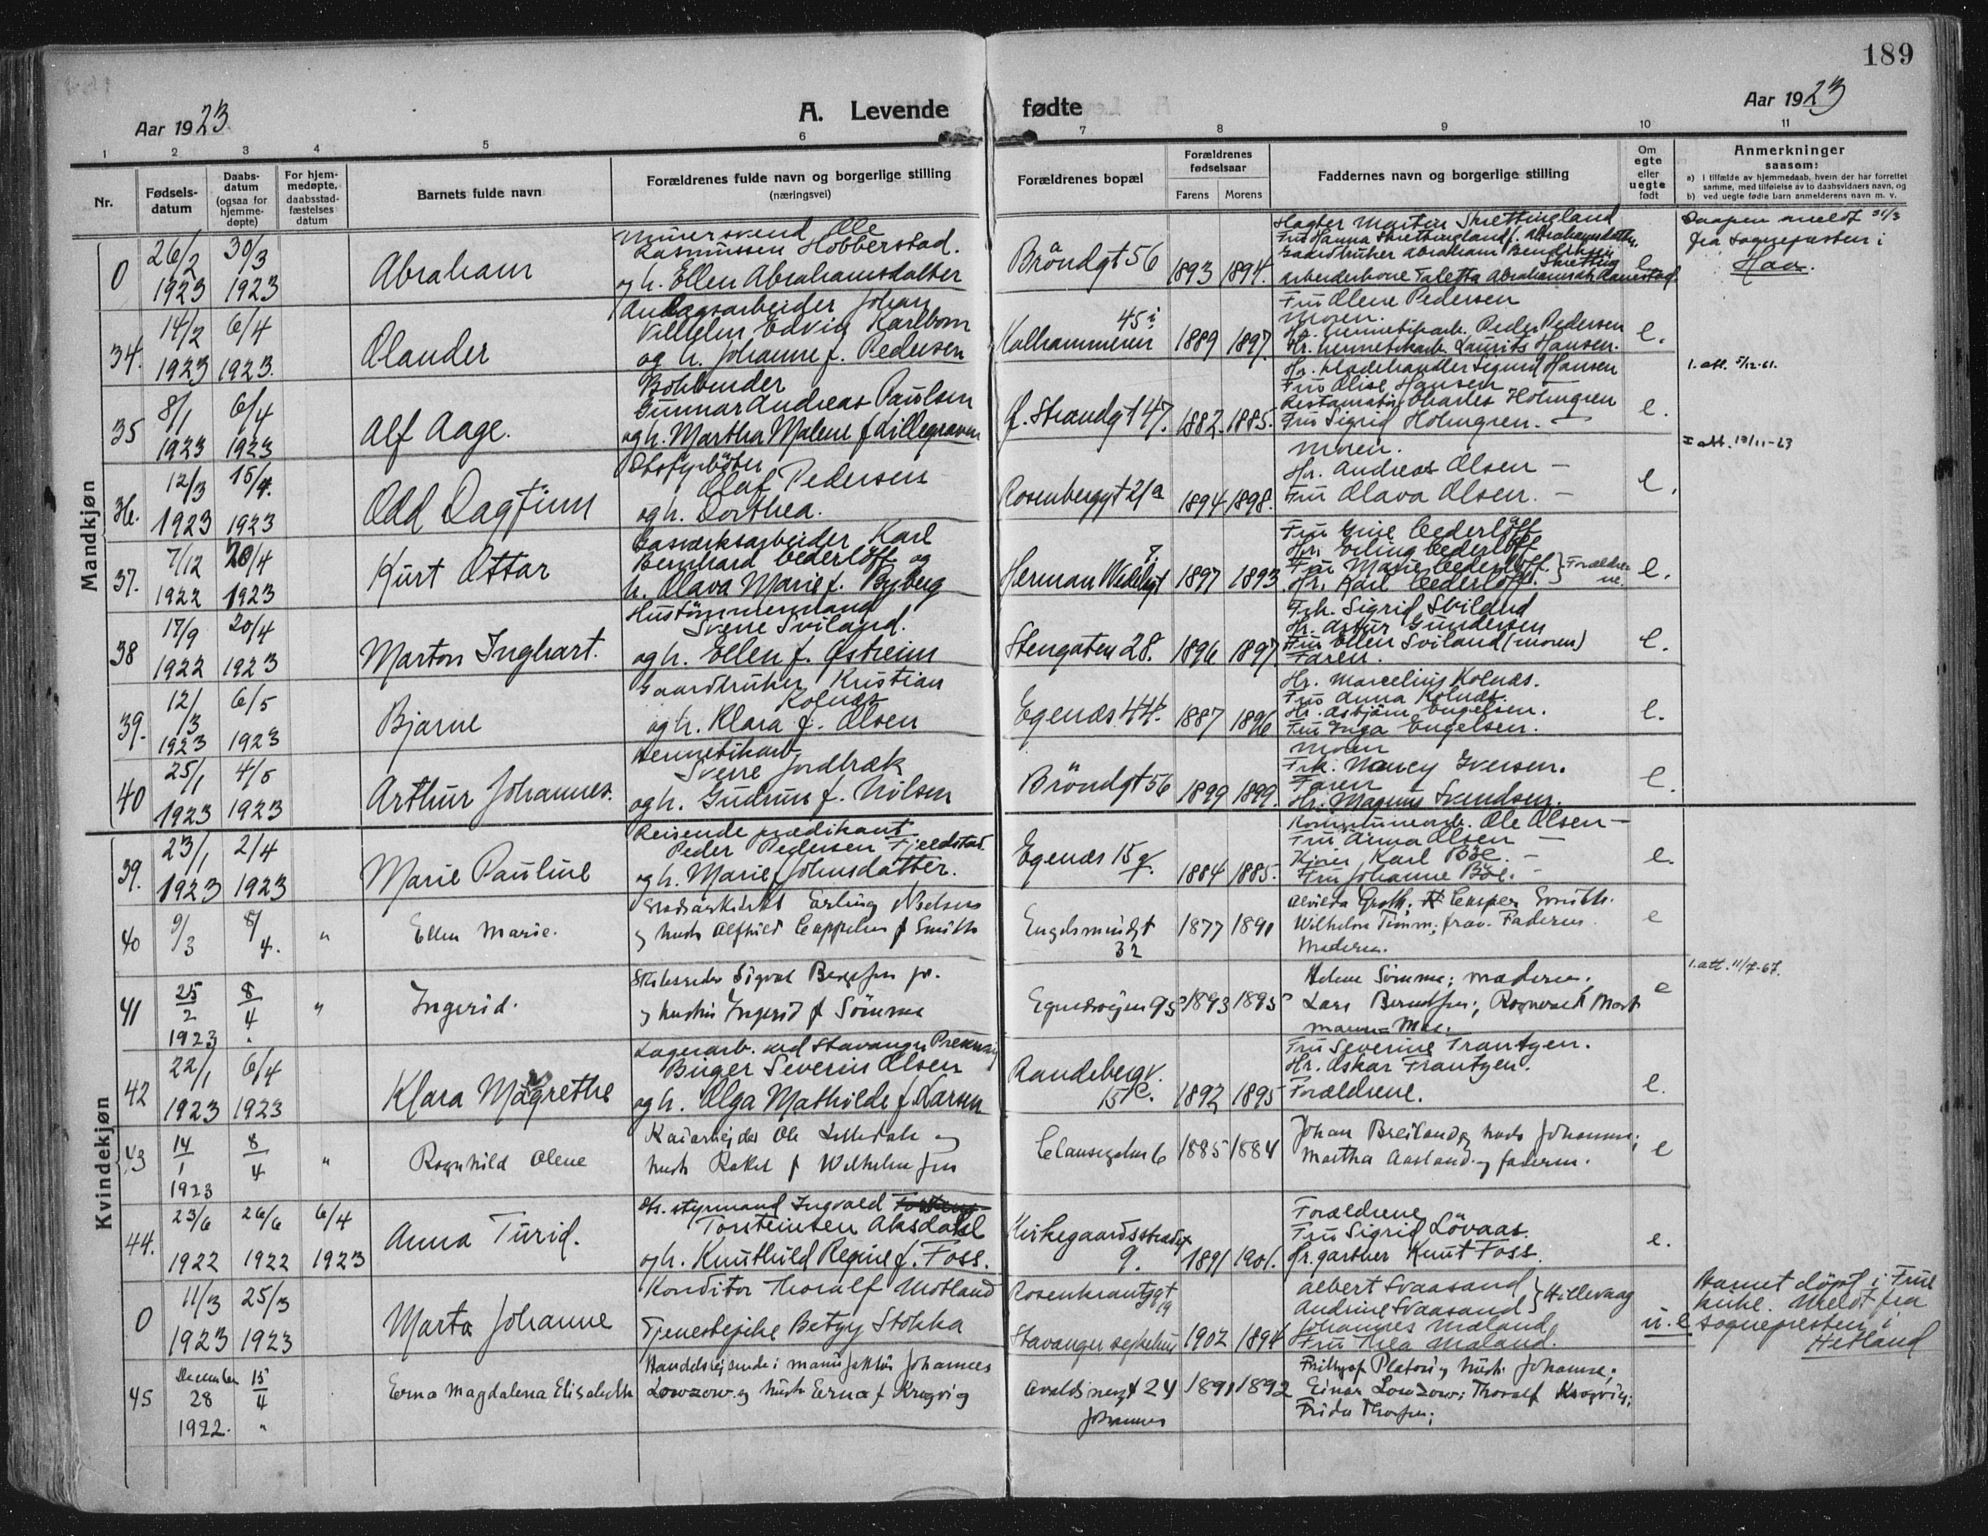 189
Aar 1923.
A. Levende fødte
Aar 1923
1 2 3 4 5 6 7 8 9 10 11
Nr.
Fødselsdatum
Daabsdatum (ogsaa for hjemmedøpte)
For hjemmedøpte, daabsstadfæstelses datum
Barnets fulde navn
Forældrenes fulde navn og borgerlige stilling (næringsvei)
Forældrenes bopæl
Forældrenes fødselsaar
Farens Morens
Faddernes navn og borgerlige stilling
Om egte eller uegte født
Anmerkninger saasom:
a) i tilfælde av hjemmedaab, hvem der har forrettet samme, med tilføielse av to daabsvidners navn, og
b) ved uegte fødte barn anmelderens navn m. v.
Mandkjøn
0 26/2 1923 30/3 1923 Abraham
Murersvend Ole
Rasmussen Hobberstad.
og h. Ellen Abrahamsdatter
Bröndgt 56 1893 1894.
Martin Skrettingland
Fru Hanna Skrettingland f. Abrahamsdatter
Gaardbruker Abraham
e
Daapen meldt 31/3
fra sognepresten i
Haa.
34. 14/2 1923 6/4 1923. Olander
Anlægsarbeider Johan
Vilhelm Edvin Karlbom
og h. Johanne f. Pedersen
Kalhammeren 45 i 1889 1897.
Fru Olene Pedersen
Moren.
Hr. hermetikarb. Peder Pedersen
Hr. hermetikarb. Laurits Hansen.
e.
35 8/1 1923 6/4 1923 Alf Aage.
Bokbinder
Gunnar Andreas Paulsen
og h. Martha Malene f. Lillegraven
Ø. Strandgt 47. 1882. 1885.
Sigurd Hansen
Fru Olise Hansen
Charles Holmgren
Fru Sigrid Holmgren.
e.
1. att. 5/12-61.
36. 12/3 1923 15/4. 1923 Odd Dagfinn
Olaf Pedersen
og h. Dorthea.
Rosenberggt 21a 1894 1898.
Moren.
Hr. Andreas Olsen
Fru Olava Olsen.
e.
1 att. 19/11-63
37. 7/12 1922 20/4 1923 Kurt Ottar
Gasværksarbeider Karl
Bernhard Cederlöff og
h. Olava Marie f. Byberg
Herman Wedelsgt 7. 1897 1893
Fru Gine Cederlöff
Hr. Erling Cederlöff
Fru Marie Cederlöff
Hr. Karl Cederlöff } Forældrene.
e.
38 17/9 1922 20/4 1923 Marton Inghart.
Hustömmermand
Svene Sviland.
og h. Ellen f. Østreim
Stengaten 28. 1896 1897
Frk. Sigrid Sviland
Hr. Artur Gundersen
Fru Ellen Sviland (moren)
Faren.
e.
39. 12/3 1923 6/5 1923 Bjarne
Gaardbruker Kristian
Kolnes
og h. Klara f. Olsen
Egenæs 44. 1887 1896
Hr. Marcelius Kolnæs.
Fru Anna Kolnæs.
Hr. Asbjørn Engelsen.
Fru Inga Engelsen.
e.
40 25/1 1923 4/5 1923 Arthur Johannes.
Hermetikarb.
Sverre Jordbræk
og h. Gudrun f. Nilsen
Bröndgt 56 1899 1899.
Moren
Frk. Nancy Iversen.
Faren
Hr. Magnus Svendsen.
e.
Kvindekjøn
39. 23/1 1923 2/4 1923 Marie Pauline
Reisende prædikant
Peder Pedersen Fjeldstad.
og h. Marie Johnsdatter.
Egenæs 15 1884 1885.
Ole Olsen
Fru Anna Olsen
Karl Böe.
Fru Johanne Böe.
e.
40 9/3 8/4. " Ellen Marie.
Stadsarkitekt Erling Nielsen
og hustr Alfhild Cappelen f Smith
Engelsmindgt 32 1877 1891
Alvilda Groth. Casper Smith.
Wilhelm Timm; Faderen
Moderen.
e
41 25/2 1923 8/4 " " Ingerid.
Skibsreder Sigval Bergesen jr.
og hustru Ingerid f Sömme
Egenesveien 95 1893 1895
Helene Sömme; moderen;
Lars Berentsen;
e
1. att. 11/7-67.
42 22/1 1923 6/4 1923 Klara Magrethe
Lagerarb. ved Stavanger Preserving
Birger Severin Olsen
og h. Olga Mathilde f. Larsen
Randebergv. 15 1892 1895
Fru Severine Frantzen.
Hr. Oskar Frantzen.
Forældrene.
e.
43 14/1 1923 8/4 " Ragnhild Olene
Kaiarbejder Ole Lilledale og
hustr Rakel f Wilhelmsen
Clausegaten 6 1885 1884
Johan Breiland og hustr Johanne;
Martha Aasland og faderen.
e
44. 23/6 1922 26/6 1922 6/4 1923 Anna Turid.
styrmand Ingvald
Torsteinsen Aksdahl
og h. Knuthild Regine f. Foss.
Kirkegaardsstrædet 9. 1891 1901.
Forældrene
Fru Sigrid Lövaas.
Hr. gartner Knut Foss.
e.
0 11/3 1923 25/3 1923 Marta Johanne
Konditor Thoralf Motland
Tjenestepike Betzy Stokka
Rosenkrantzgt 19
Stavanger sykehus 1902 1894
Albert Svaasand
Andrine Svaasand } Hillevaag
Johannes Maland
Fru Thea Maland.
u. e.
Barnet döpt i Frue
kirke. Meldt fra
sognepresten i
Hetland
45 December 28 1922. 15/4 " Erna Magdalena Elisabeth
Handelsrejsende i manufaktur Johannes
Lowzow og hustr Erna f Krogvig
Avaldsnesgt 24 1891 1892
Johannes
Frithjof Platou og hustr. Johanne;
Einar Lowzow; Thoralf Krogvig;
Frida Thorsen;